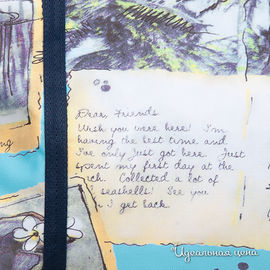 Dear, Friends
Wish you were here! I'm
having the best time and
I've only just got here. Just
spent my first day at the
ch. Collected a lot of
seashells! See you
I get back.
ng
Идеальная цена